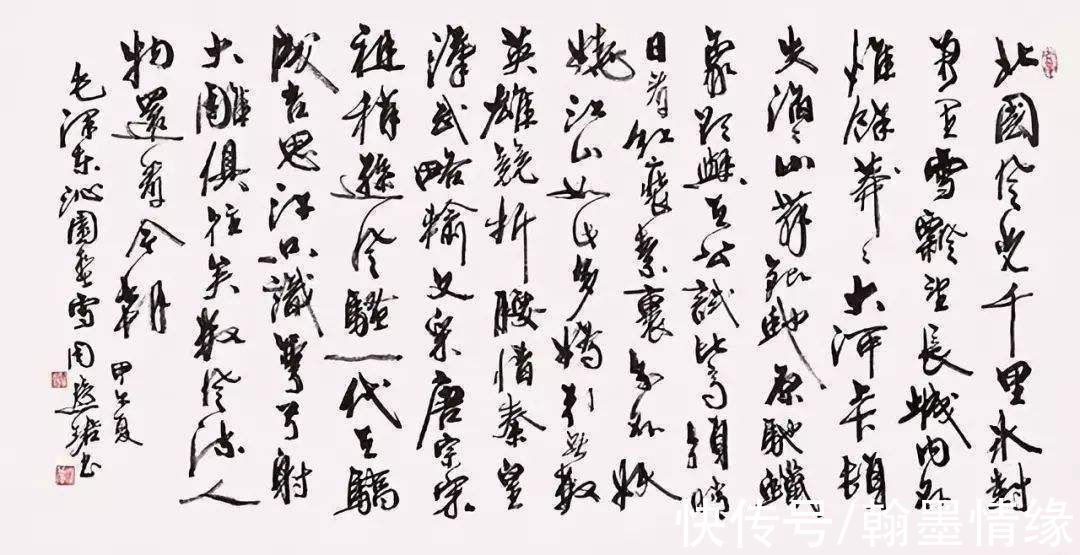 北國風光千里冰封
萬里雪飄望長城內外
惟餘莽〻大河上下頓
失滔〻山舞銀蛇原馳蠟
象欲與天公試比高須晴
日看紅裝素裹分外妖
嬈江山如此多嬌引無數
英雄競折腰惜秦皇
漢武略輸文采唐宗宋
祖稍遜風騷一代天驕
成吉思汗只識彎弓射
大雕俱往矣數風流人
物還看今朝
甲午夏
毛澤東沁園春雪周書
快传号/翰墨情缘